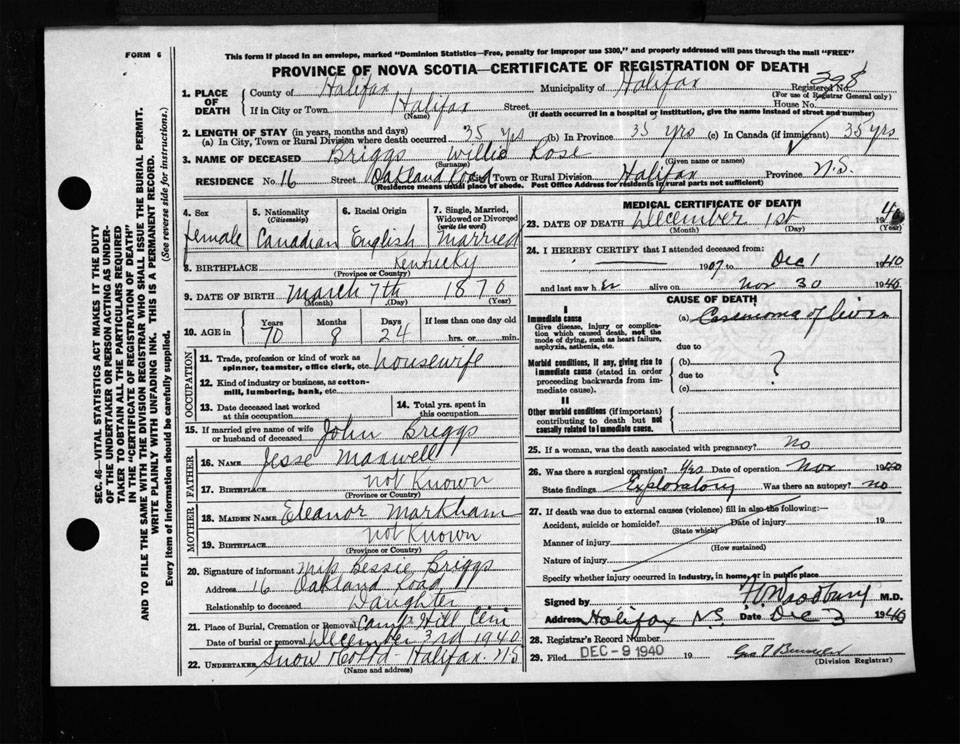 FORM 6
This form if placed in an envelope, marked "Dominion Statistics—Free, penalty for improper use $300," and properly addressed will pass through the mail "FREE"
PROVINCE OF NOVA SCOTIA—CERTIFICATE OF REGISTRATION OF DEATH
SEC. 46—VITAL STATISTICS ACT MAKES IT THE DUTY
OF THE UNDERTAKER OR PERSON ACTING AS UNDER-
TAKER TO OBTAIN ALL THE PARTICULARS REQUIRED
IN THE "CERTIFICATE OF REGISTRATION OF DEATH"
AND TO FILE THE SAME WITH THE DIVISION REGISTRAR WHO SHALL ISSUE THE BURIAL PERMIT.
WRITE PLAINLY WITH UNFADING INK. THIS IS A PERMANENT RECORD.
Every item of information should be carefully supplied. (See reverse side for instructions.)
1. PLACE OF DEATH
County of Halifax Municipality of Halifax Registered No. 298
(For use of Registrar General only)
If in City or Town Halifax Street House No.
(Name) (If death occurred in a hospital or institution, give the name instead of street and number)
2. LENGTH OF STAY (in years, months and days)
(a) In City, Town or Rural Division where death occurred 35 yrs (b) In Province 35 yrs (c) In Canada (if immigrant) 35 yrs
3. NAME OF DECEASED Briggs Willie Rose
(Surname) (Given name or names)
RESIDENCE No. 16 Street Oakland Road City Town or Rural Division Halifax Province N.S.
(Residence means usual place of abode. Post Office Address for residents in rural parts not sufficient)
4. Sex female
5. Nationality (Citizenship) Canadian
6. Racial Origin English
7. Single, Married, Widowed or Divorced (write the word) Married
8. BIRTHPLACE Kentucky
(Province or Country)
9. DATE OF BIRTH March 7th 1870
(Month) (Day) (Year)
10. AGE in Years 70 Months 8 Days 24 If less than one day old hrs. or min.
OCCUPATION
11. Trade, profession or kind of work as spinner, teamster, office clerk, etc. housewife
12. Kind of industry or business, as cotton-mill, lumbering, bank, etc.
13. Date deceased last worked at this occupation
14. Total yrs. spent in this occupation
15. If married give name of wife or husband of deceased John Briggs
FATHER
16. NAME Jesse Maxwell
17. BIRTHPLACE not Known
(Province or Country)
MOTHER
18. MAIDEN NAME Eleanor Markham
19. BIRTHPLACE not Known
(Province or Country)
20. Signature of informant Miss Bessie Briggs
Address 16 Oakland Road
Relationship to deceased Daughter
21. Place of Burial, Cremation or Removal Camp Hill Cem
Date of burial or removal December 3rd 1940
22. UNDERTAKER Snow & Co Ltd - Halifax. N.S
(Name and address)
MEDICAL CERTIFICATE OF DEATH
23. DATE OF DEATH December 1st 1940
(Month) (Day) (Year)
24. I HEREBY CERTIFY that I attended deceased from:
1907 to Dec 1 1940
and last saw her alive on Nov 30 1940
CAUSE OF DEATH
I
Immediate cause
Give disease, injury or complication which caused death, not the mode of dying, such as heart failure, asphyxia, asthenia, etc.
(a) Carcinoma of liver
due to
Morbid conditions, if any, giving rise to immediate cause (stated in order proceeding backwards from immediate cause).
(b) ?
due to
(c)
II
Other morbid conditions (if important) contributing to death but not causally related to immediate cause.
25. If a woman, was the death associated with pregnancy? no
26. Was there a surgical operation? yes Date of operation Nov 1940
State findings Exploratory Was there an autopsy? no
27. If death was due to external causes (violence) fill in also the following:—
Accident, suicide or homicide? Date of injury 19
(State which)
Manner of injury
(How sustained)
Nature of injury
Specify whether injury occurred in industry, in home, or in public place
Signed by Woodbury M.D.
Address Halifax N.S. Date Dec 3 1940
28. Registrar's Record Number
29. Filed DEC - 9 1940 19
(Division Registrar)